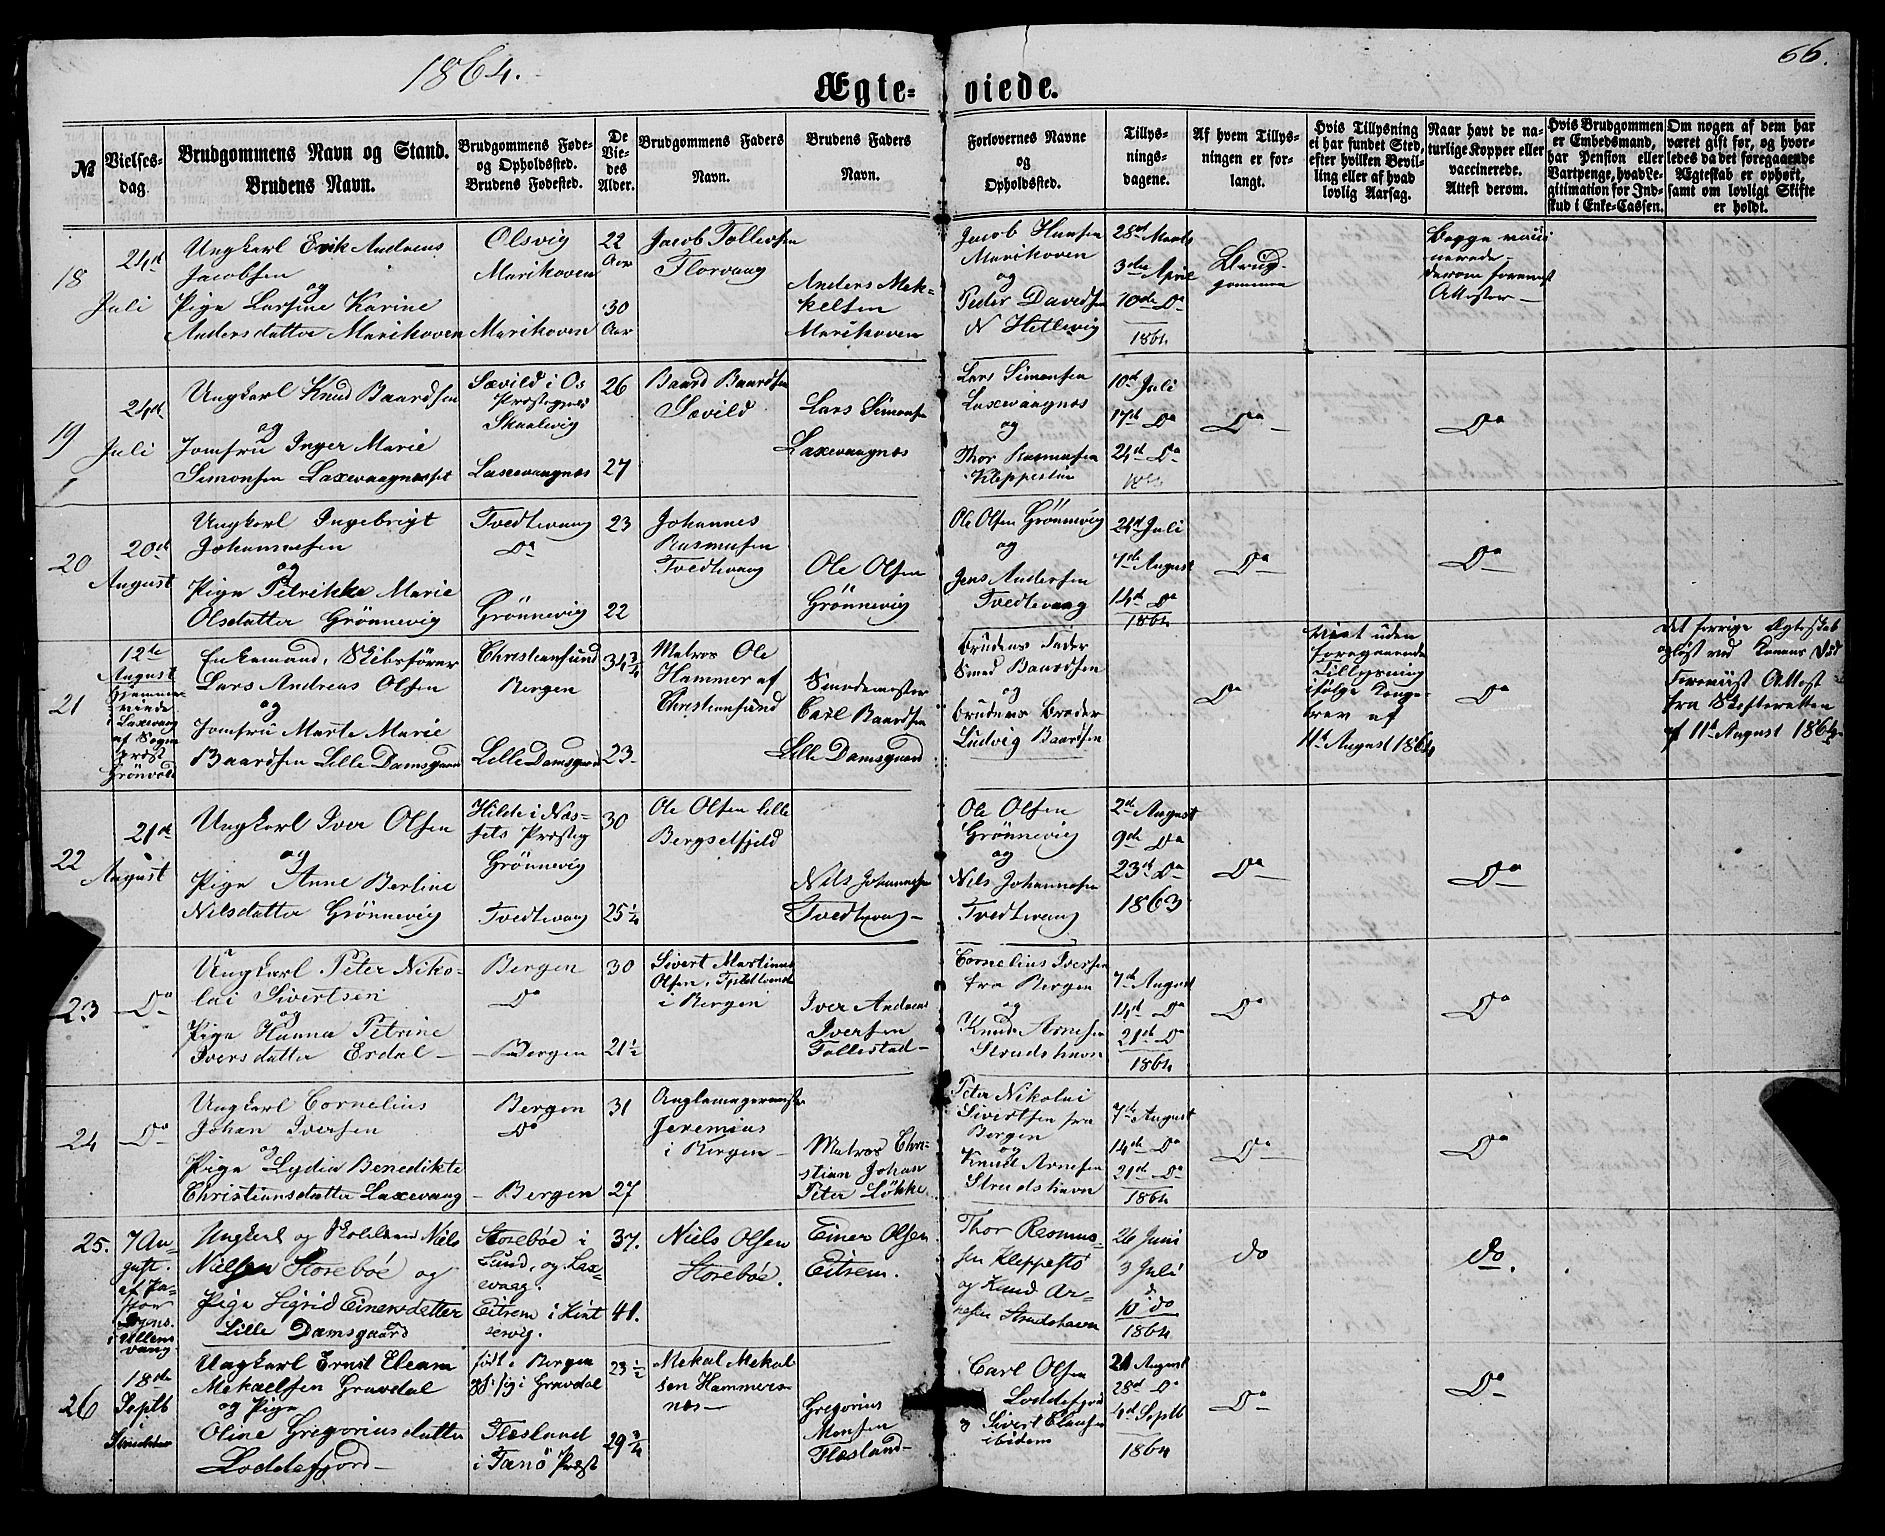 1864.
66.
Ægte-
viede.
№
Vielses-
dag.
Brudgommens Navn og Stand.
Brudens Navn.
Brudgommens Føde-
og Opholdssted.
Brudens Fødested.
De
Vie-
des
Alder.
Brudgommens Faders
Navn.
Brudens Faders
Navn.
Forlovernes Navne
og
Opholdssted.
Tillys-
nings-
dagene.
Af hvem Tillys-
ningen er for-
langt.
Hvis Tillysning
ei har fundet Sted,
efter hvilken Bevil-
ling eller af hvad
lovlig Aarsag.
Naar havt de na-
turlige Kopper eller
vaccinerede.
Attest derom.
Hvis Brudgommen
er Embedsmand,
har Pension eller
Vartpenge, hvad Le-
gitimation for Ind-
skud i Enke-Cassen.
Om nogen af dem har
været gift før, og hvor-
ledes da det foregaaende
Ægteskab er ophørt,
samt om lovligt Skifte
er holdt.
18
24de
Juli
Ungkarl Erik Andreas
Jacobsen
og
Pige Larsine Karine
Andersdatter Marikoven
Olsvig
Marikoven
Marikoven
22
Aar
30
Aar
Jacob Tollevsen
Florvaag
Anders Mek-
kelsen
Marikoven
Jacob Hansen
Marikoven
og
Peder Davidsen
N Hetlevig
28de Marts
3die April
10de Do
1864
Brud-
gommen
Begge vacci
nerede
derom forevist
Attester
19
24de
Juli
Ungkarl Knud Baardsen
og
Jomfru Inger Marie
Simonsen Laxevaagnesset
Sævild i Os
Præstegjeld
Skaalevig
Laxevaagnes
26
27
Baard Baardsen
Sævild
Lars Simonsen
Laxevaagnes
Lars Simonsen
Laxevaagnæs
og
Thor Rasmusen
Kleppestøe
10de Juli
17de Do
24de Do
1864
Do
Do
20
20de
August
Ungkarl Ingebrigt
Johannesen
og
Pige Petrikke Marie
Olsdatter Grönnevig
Tvedtevaag
Do
Grönnevig
23
22
Johannes
Rasmusen
Tvedtevaag
Ole Olsen
Grönnevig
Ole Olsen Grönnevig
og
Jens Andersen
Tvedtevaag
24de Juli
7de August
14de Do
1864
Do
Do
21
12te
August
Hjemme-
viede
i Laxevaag
af Sogne
præst
Grönvold
Enkemand, Skibsförer
Lars Andreas Olsen
og
Jomfru Marte Marie
Baardsen Lille Damsgaard
Christiansund
Bergen
Lille Damsgaard
34 3/4
23
Matros Ole
Hammer af
Christiansund
Smedemester
Carl Baardsen
Lille Damsgaard
Brudens Fader
Smed Baardsen
og
Brudens Broder
Ludvig Baardsen
Do
Viet uden
foregaaende
Tillysning
ifølge Konge-
brev af
11te August 1864
Do
Det forrige Ægteskab
opløst ved Konens Död
Forevist Attest
fra Skifteretten
af 11te August 1864
22
21de
August
Ungkarl Iver Olsen
og
Pige Anne Berline
Nilsdatter Grönnevig
Hilde i Næs-
sets Præsteg
Grönnevig
Tvedtevaag
30
25 1/4
Ole Olsen lille
Bergsetfjeld
Nils Johannesen
Tvedtevaag
Ole Olsen
Grönnevig
og
Nils Johannesen
Tvedtevaag
2de August
9de Do
23de Do
1863
Do
Do
23
Do
Ungkarl Peter Niko-
lai Sivertsen
og
Pige Hanna Petrine
Iversdatter Erdal
Bergen
Do
Bergen
30
21 1/2
Sivert Martinus
Olsen,
i Bergen
Iver Andreas
Iversen
Follestad
Cornelius Iversen
fra Bergen
og
Knud Arnesen
Strudshavn
7de August
14de Do
21de Do
1864
Do
Do
24
Do
Ungkarl Cornelius
Johan Iversen
og
Pige Lydia Benedikte
Christiansdatter Laxevaag
Bergen
Do
Bergen
31
27
Jeremias
i Bergen
Matros Chri-
stian Johan
Peter Lökke
Peter Nikolai
Sivertsen fra
Bergen
og
Knud Arnesen
Strudshavn
7de August
14de Do
21de Do
1864
Do
Do
25.
7 Au-
gust.
af Pa-
stor
i Ullens
vang
Ungkarl og Niels
Nielsen Storebøe og
Pige Sigrid Einersdatter
Lille Damsgaard
Storebøe i
Sund, og Lax-
evaag.
Eitrem i Kint
servig.
37.
41.
Niels Olsen
Storebøe.
Einer Olsen
Eitrem.
Thor Rasmus-
sen Kleppestö
og Knud Ar-
nesen Strudshavn
26 Juni
3 Juli
10 do
1864
do
do.
26
18de
Septb
Ungkarl Ernst Eleam
Mekaelsen Gravdal
og Pige
Oline Gregoriusdatter
Loddefjord
født i Bergen
opholder sig i Gravdal
Flesland
i Fanö Præst
23 1/2
29 3/4
Mekal Mekal
sen Hammers-
næs
Gregorius
Monsen
Flesland
Carl Olsen
Loddefjord
og Sivert Clausen
ibidem
21 August
28de Do
4de Septb
1864
Do
Do